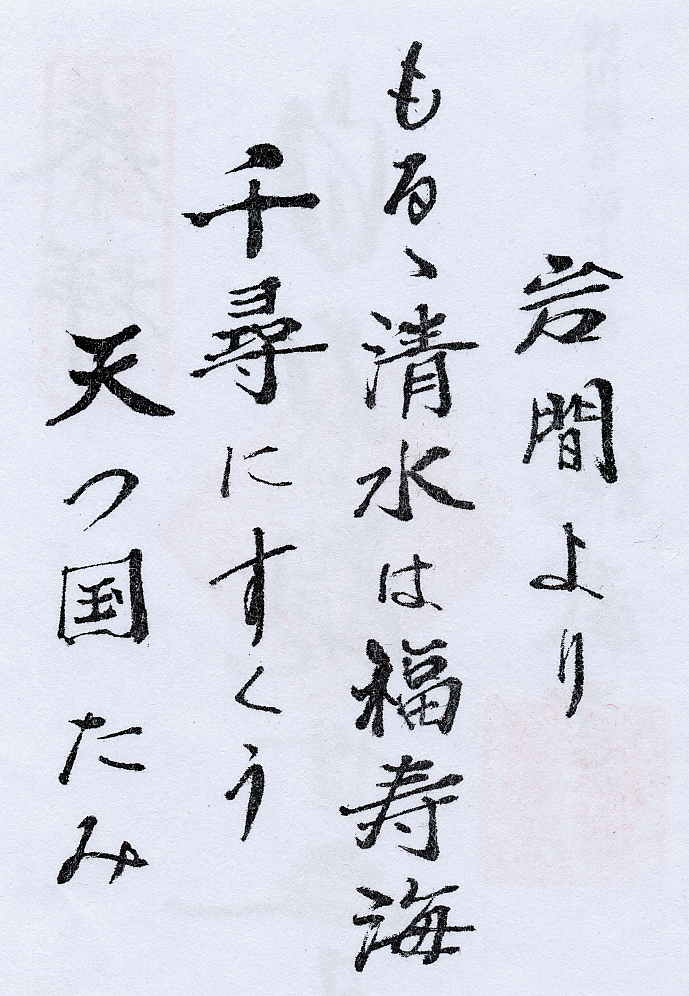 岩間より
もるゝ清水は福寿海
千尋にすくう
天つ国たみ